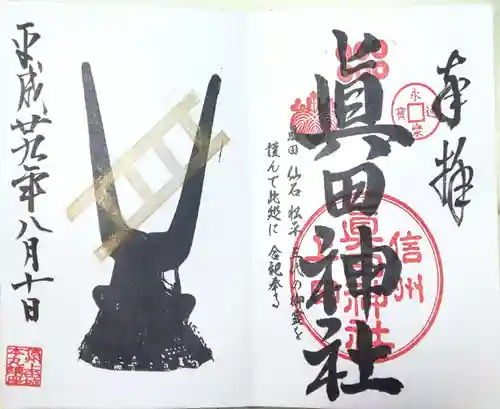 奉拝
眞田神社
永楽通寳
信州
上田
眞田神社
真田 仙石 松平 三代の御霊を
謹んで此処に 合祀奉る
平成廿九年八月十日